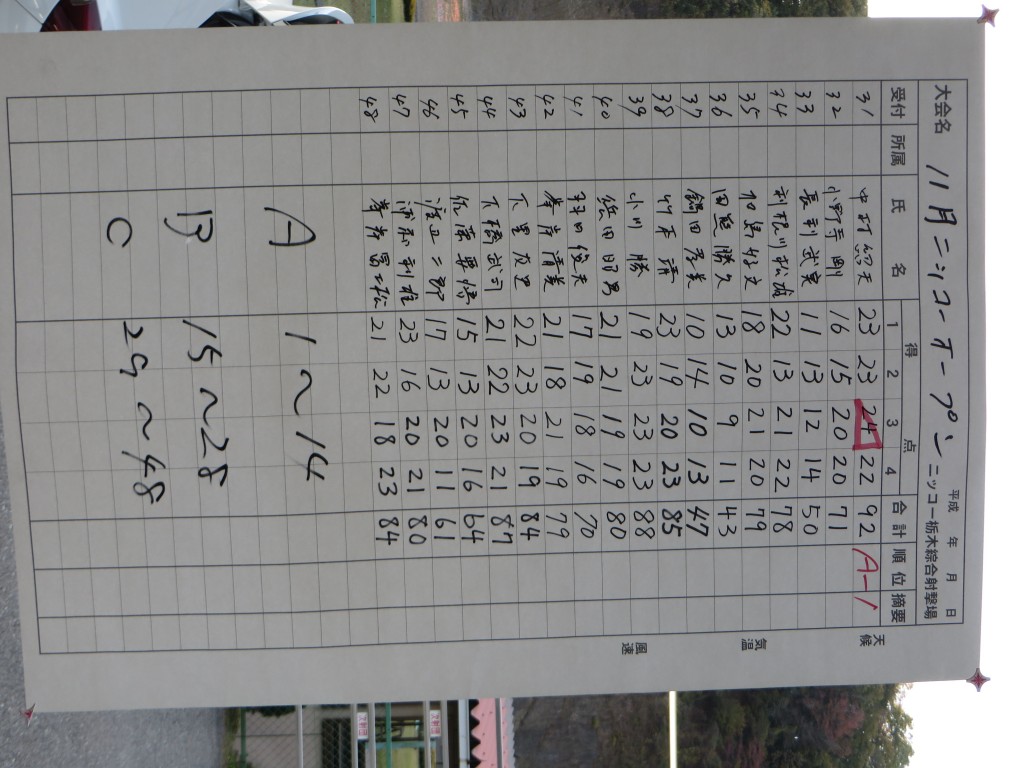 大会名 11月ニッコーオープン 平成 年 月 日
ニッコー栃木綜合射撃場
受付 所属 氏名 得点 合計 順位 摘要
1 2 3 4
31 中村 23 23 24 22 92 A-1
32 小野寺 剛 16 15 20 20 71
33 長利 武 11 13 12 14 50
34 利根川 松雄 22 13 21 22 78
35 18 20 21 20 79
36 田 勝久 13 10 9 11 43
37 10 14 10 13 47
38 竹本 清 23 19 20 23 85
39 小川 勝 19 23 23 23 88
40 松田 昭男 21 21 19 19 80
41 羽田 俊夫 17 19 18 16 70
42 峯岸 清美 21 18 21 19 79
43 下里 22 23 20 19 84
44 大橋 武司 21 22 23 21 87
45 佐藤 15 13 20 16 64
46 渡辺 二郎 17 13 20 11 61
47 浦和 利雄 23 16 20 21 80
48 峯岸 富松 21 22 18 23 84
A 1〜14
B 15〜28
C 29〜48
天候
気温
風速